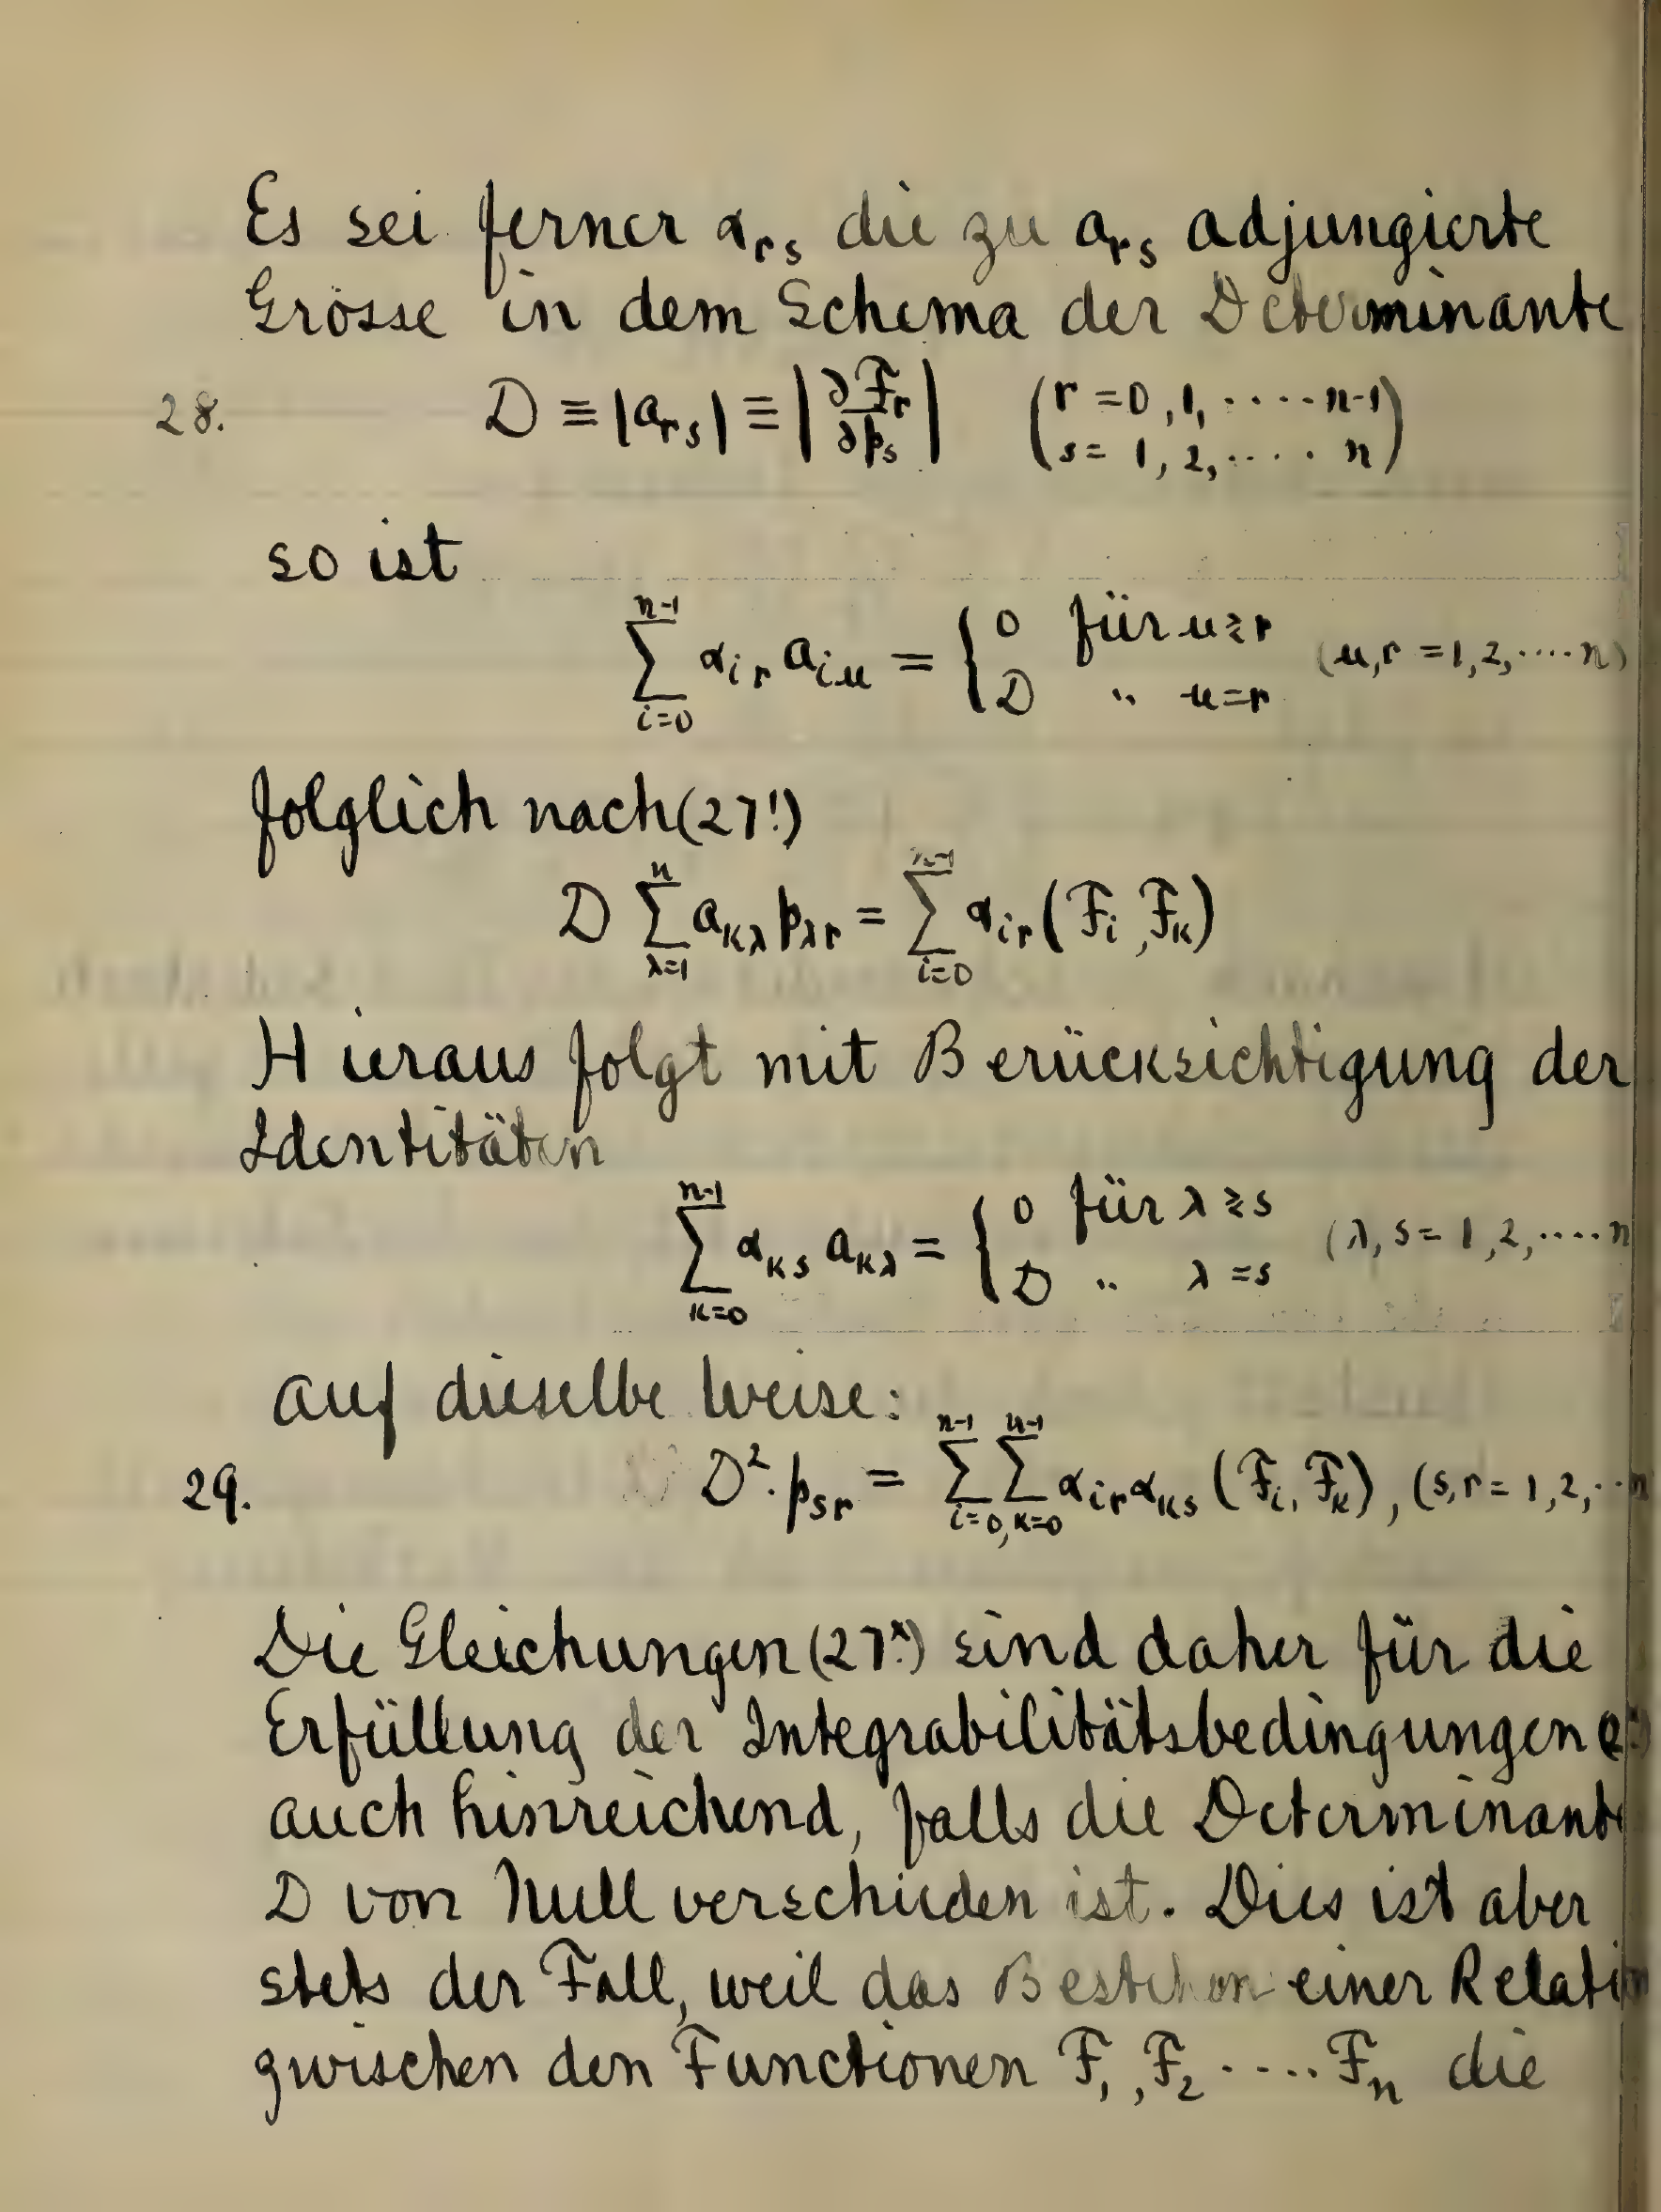 Es sei ferner α_rs die zu a_rs adjungierte
Grösse in dem Schema der Determinante
28. D ≡ |a_rs| ≡ |∂F_r/∂p_s| (r = 0, 1, ····· n-1 / s = 1, 2, ····· n)
so ist
∑_{i=0}^{n-1} α_ir a_iu = { 0 für u ≷ r / D „ u = r (u, r = 1, 2, ····· n)
folglich nach (27!)
D ∑_{λ=1}^{n} a_κλ p_λr = ∑_{i=0}^{n-1} α_ir (F_i, F_κ)
Hieraus folgt mit Berücksichtigung der
Identitäten
∑_{κ=0}^{n-1} α_κs a_κλ = { 0 für λ ≷ s / D „ λ = s (λ, s = 1, 2, ····· n
auf dieselbe Weise:
29. D². p_sr = ∑_{i=0}^{n-1} ∑_{κ=0}^{n-1} α_ir α_κs (F_i, F_κ), (s, r = 1, 2, ·· n
Die Gleichungen (27ˣ.) sind daher für die
Erfüllung der Integrabilitätsbedingungen
auch hinreichend, falls die Determinante
D von Null verschieden ist. Dies ist aber
stets der Fall, weil das Bestehen einer Relation
zwischen den Functionen F₁, F₂ ····· Fₙ die